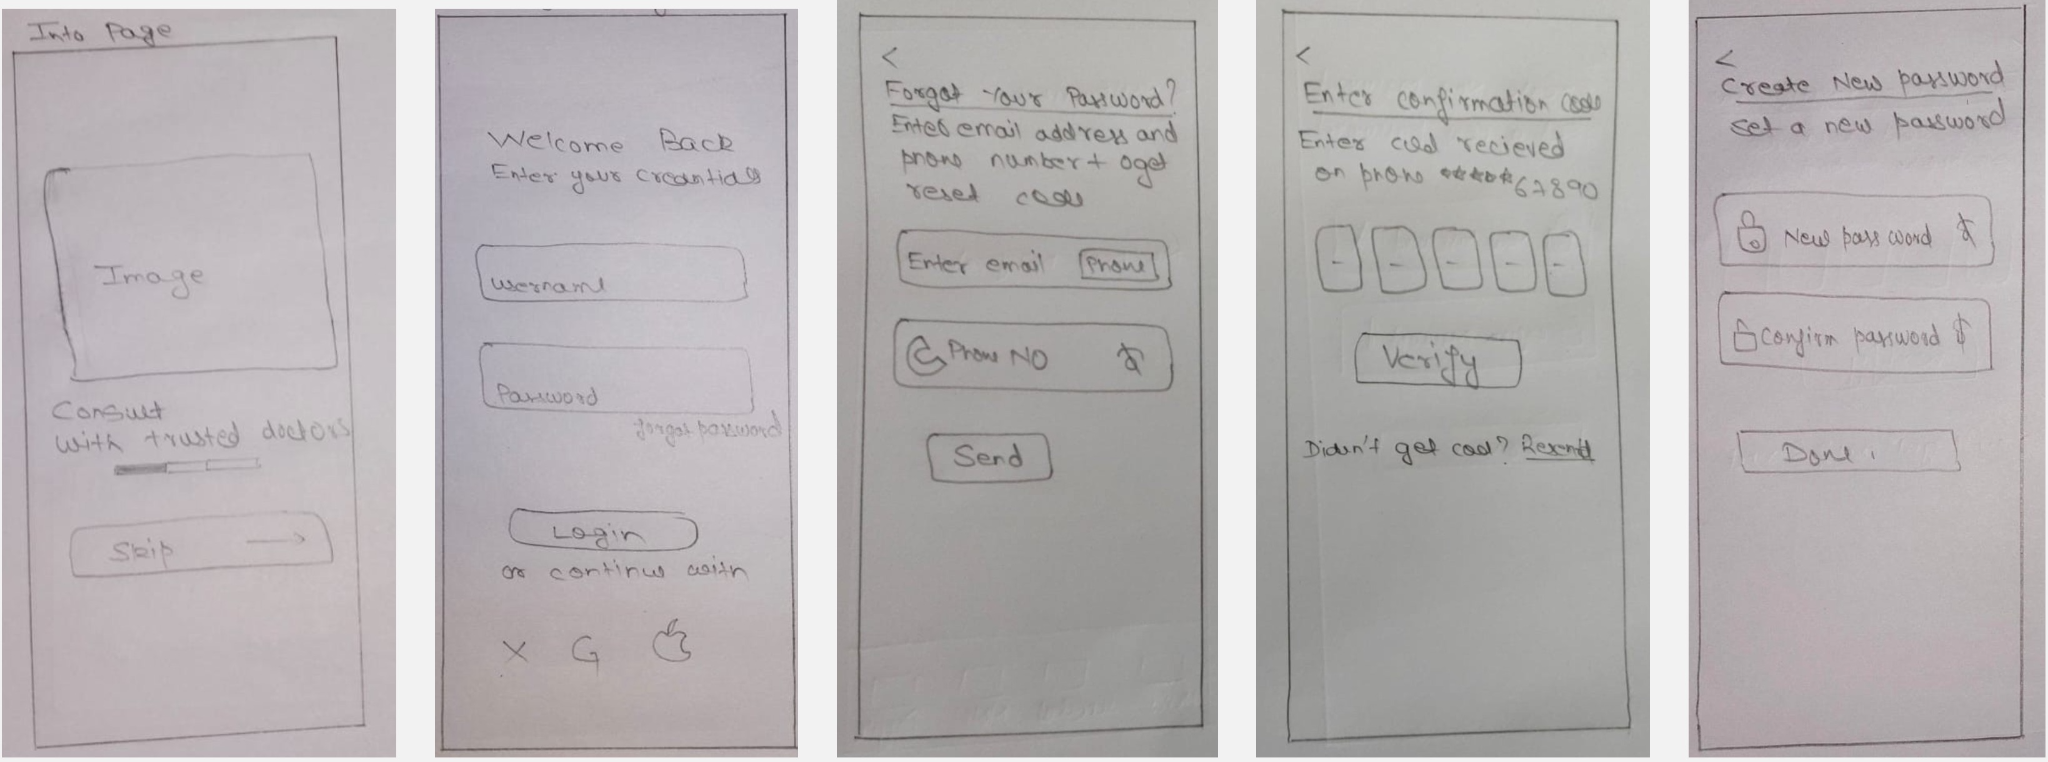 Into Page
Image
Consult
with trusted doctors
Skip
Welcome Back
Enter your
username
Password
forgot password
Login
or continue with
X G
<
Forgot Your Password?
Enter email address and
phone number t oget
reset code
Enter email Phone
Phone NO
Send
<
Enter confirmation code
Enter recieved
on phone *****67890
- - - - -
Verify
Didn't get Resend
<
Create New password
set a new password
New password
Confirm password
Done